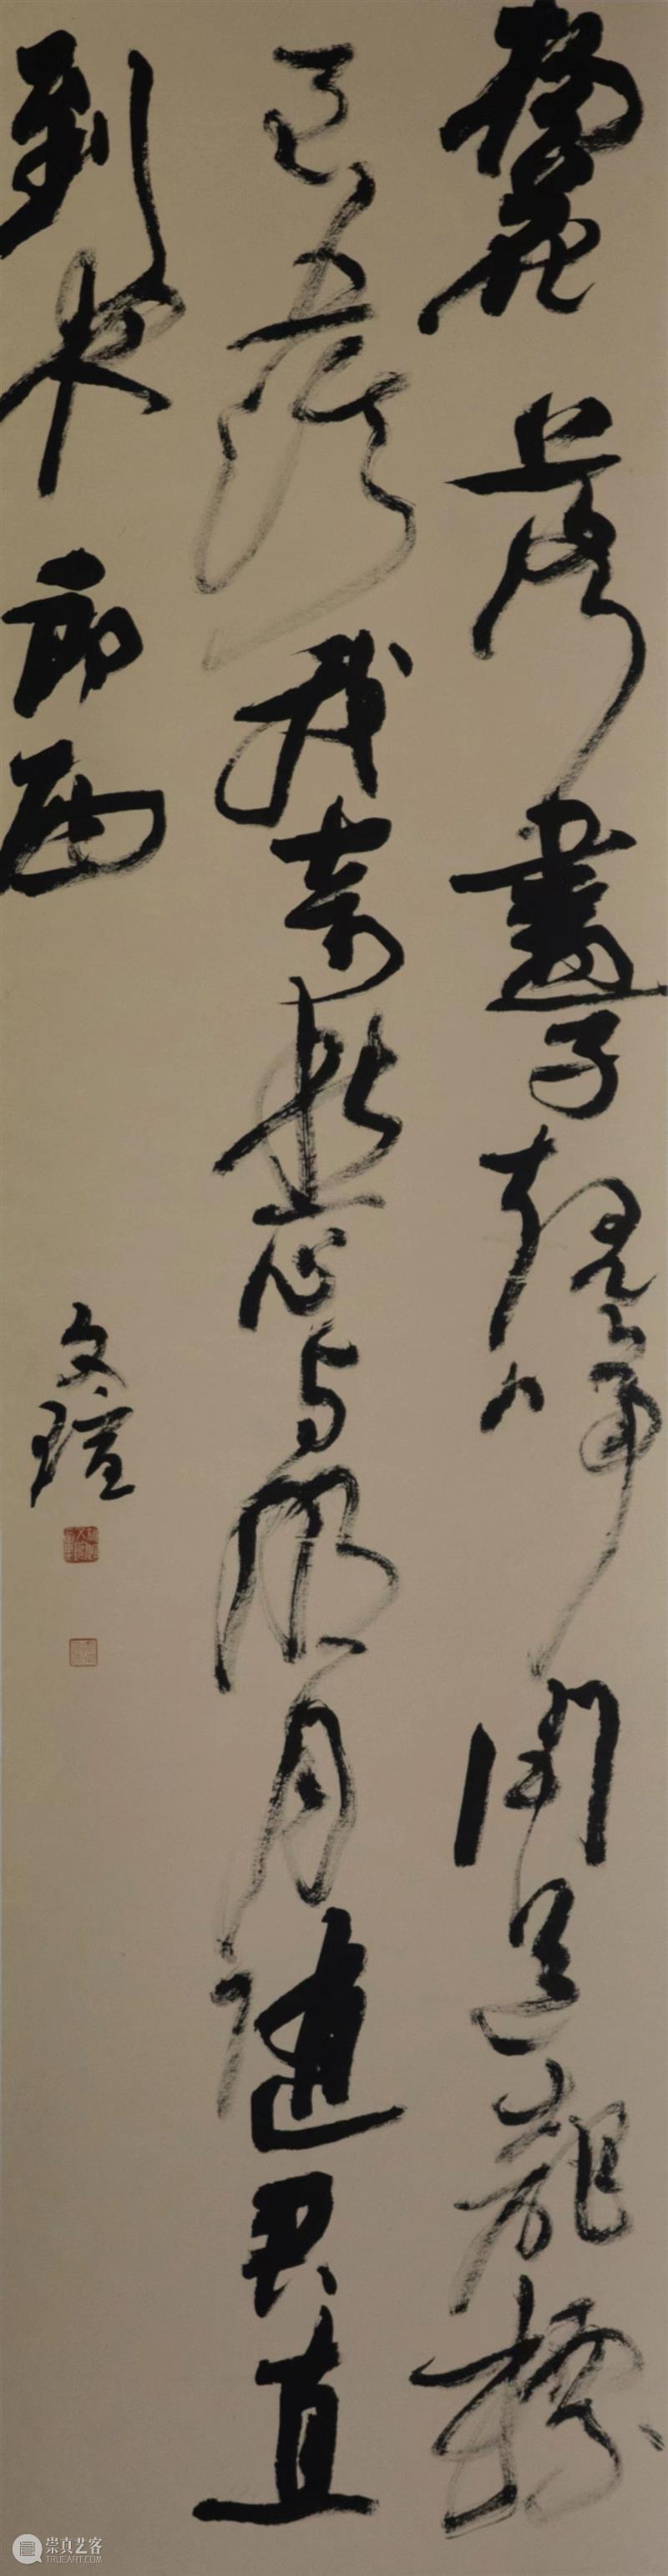 楊花落盡子規啼聞道龍標
過五溪我寄愁心与明月随君直
到夜郎西
文瑄
崇真艺客
TRUEART.COM